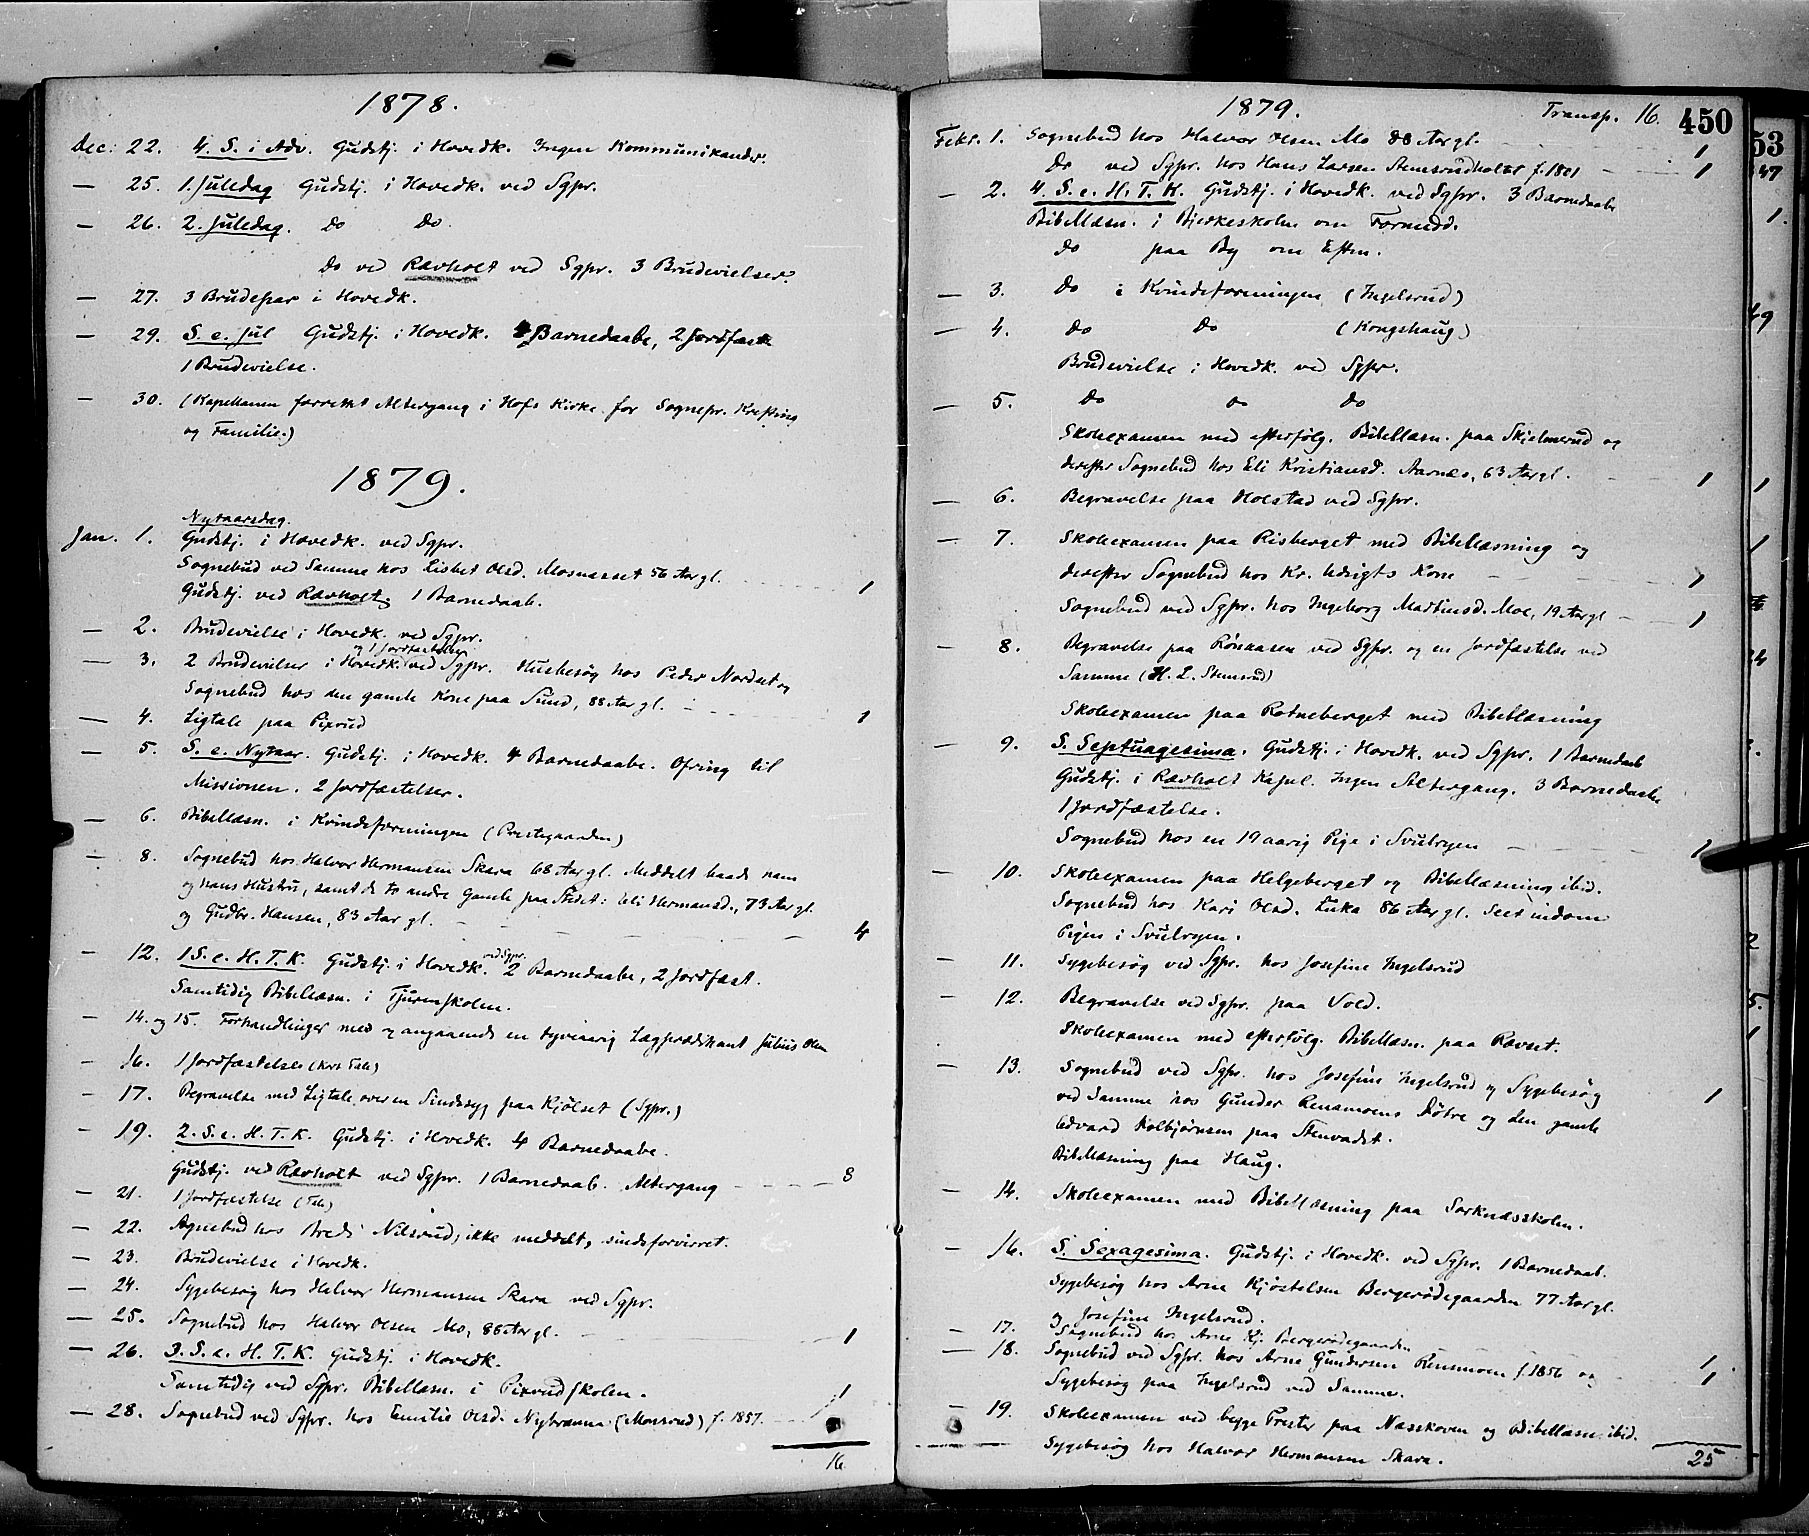 1878.
Dec. 22. 4. S. i Adv. Gudstj. i Hovedk. Ingen Kommunikander.
— 25. 1. Juledag Gudstj. i Hovedk. ved Sgpr.
— 26. 2. Juledag. Do Do.
Do ved Rævholt ved Sgpr. 3 Brudevielser.
— 27. 3 Brudepar i Hovedk.
— 29. S. e. Jul Gudstj. i Hovedk. 4 Barnedaabe, 2 Jordfæst.
1 Brudevielse.
— 30. (Kapellanen forrettet Altergang i Hofs Kirke for Sognepr. Krefting
og Familie.)
1879.
Nytaarsdag.
Jan. 1. Gudstj. i Hovedk. ved Sgpr.
Sognebud ved Samme hos Lisbet Olsd. Mosnæsset 56 Aar gl. 1
Gudstj. ved Rævholt. 1 Barnedaab.
— 2. Brudevielse i Hovedk. ved Sgpr.
og 1 Jordfæstelse
— 3. 2 Brudevielser i Hovedk. ved Sgpr. Husbesøg hos Peder Nordset og
Sognebud hos den gamle Kone paa Sund, 88 Aar gl. 1
— 4. Ligtale paa Pixrud
— 5. S. e. Nytaar. Gudstj. i Hovedk. 4 Barnedaabe. Ofring til
Missionen. 2 Jordfæstelser.
— 6. Bibellæsn. i Kvindeforeningen (Prestegaarden)
— 8. Sognebud hos Halvor Hermansen Skara 68 Aar gl. Meddelt baade ham
og hans Hustru, samt de to andre Gamle paa Stedet: Eli Hermansd., 73 Aar gl.
og Gudbr. Hansen, 83 Aar gl. 4
— 12. 1 S. e. H. T. K. Gudstj. i Hovedk. ved Sgpr. 2 Barnedaabe, 2 Jordfæst.
Samtidig Bibellæsn. i Tjurenskolen.
— 14. og 15. Forhandlinger med og angaaende en tyveaarig Lægprædikant Julius Olsen
— 16. 1 Jordfæstelse (kort Tale)
— 17. Begravelse med Ligtale over en Sindssyg paa Kjølset (Sgpr.)
— 19. 2. S. e. H. T. K. Gudstj. i Hovedk. 4 Barnedaabe.
Gudstj. ved Rævholt ved Sgpr. 1 Barnedaab. Altergang 8
— 21. 1 Jordfæstelse (Tale)
— 22. Sognebud hos Nilsrud, ikke meddelt, sindsforvirret.
— 23. Brudevielse i Hovedk.
— 24. Sygebesøg hos Halvor Hermansen Skara ved Sgpr.
— 25. Sognebud hos Halvor Olsen Mo, 88 Aar gl. 1
— 26. 3. S. e. H. T. K. Gudstj. i Hovedk.
Samtidig ved Sgpr. Bibellæsn. i Pixrudskolen. 1
— 28. Sognebud ved Sgpr. hos Emilie Olsd. Nybrænna (Monsrud) f. 1857. 1
16
1879. Transp. 16. 450
Febr. 1. Sognebud hos Halvor Olsen Mo 88 Aar gl. 1
Do ved Sgpr. hos Hans Larsen Stemsrudholtet f. 1801 1
— 2. 4. S. e. H. T. K. Gudstj. i Hovedk. ved Sgpr. 3 Barnedaabe
Bibellæsn. i Bjerkeskolen om Formidd.
Do paa By om Eftm.
— 3. Do i Kvindeforeningen (Ingelsrud)
— 4. Do Do (Kongshaug)
Brudevielse i Hovedk. ved Sgpr.
— 5. Do Do Do
Skoleexamen med efterfølg. Bibellæsn. paa Skjelmerud og
derefter Sognebud hos Eli Kristiansd. Aarnæs, 63 Aar gl. 1
— 6. Begravelse paa Holstad ved Sgpr.
— 7. Skoleexamen paa Risberget med Bibellæsning og
derefter Sognebud hos Kr. Kone 1
Sognebud ved Sgpr. hos Ingeborg Martinsd. Moe, 19 Aar gl 1
— 8. Begravelse paa Rønaasen ved Sgpr. og en Jordfæstelse ved
Samme (H. L. Stemsrud)
Skoleexamen paa Rotneberget med Bibellæsning
— 9. S. Septuagesima. Gudstj. i Hovedk. ved Sgpr. 1 Barnedaab
Gudstj. i Rævholt Kapel. Ingen Altergang. 3 Barnedaabe
1 Jordfæstelse.
Sognebud hos en 19 aarig Pige i Svulryen 1
— 10. Skoleexamen paa Helgeberget og Bibellæsning ibid.
Sognebud hos Kari Olsd. Luka 86 Aar gl. Seet indom
Pigen i Svulryen.
— 11. Sygebesøg ved Sgpr. hos Josefine Ingelsrud
— 12. Begravelse ved Sgpr. paa Vold.
Skoleexamen med efterfølg. Bibellæsn. paa Rævset.
— 13. Sognebud ved Sgpr. hos Josefine Ingelsrud og Sygebesøg 1
ved Samme hos Gunder Renamoens Døtre og den gamle
Edvard Kolbjørnsen paa Stenvadet.
Bibellæsning paa Haug.
— 14. Skoleexamen med Bibellæsning paa Sorknæsskolen.
— 16. S. Sexagesima. Gudstj. i Hovedk. ved Sgpr. 1 Barnedaab.
Sygebesøg hos Arne Kjøstelsen Bergerødegaarden 77 Aar gl.
og Josefine Ingelsrud.
— 17. Sognebud hos Arne Kj. Bergerødegaarden 1.
— 18. Sognebud ved Sgpr. hos Arne Gundersen Renamoen f. 1856 og 1
Sygebesøg paa Ingelsrud ved Samme.
— 19. Skoleexamen ved begge Prester paa Næsskoven og Bibellæsn. ibid.
Sygebesøg hos Halvor Hermansen Skara.
25
53